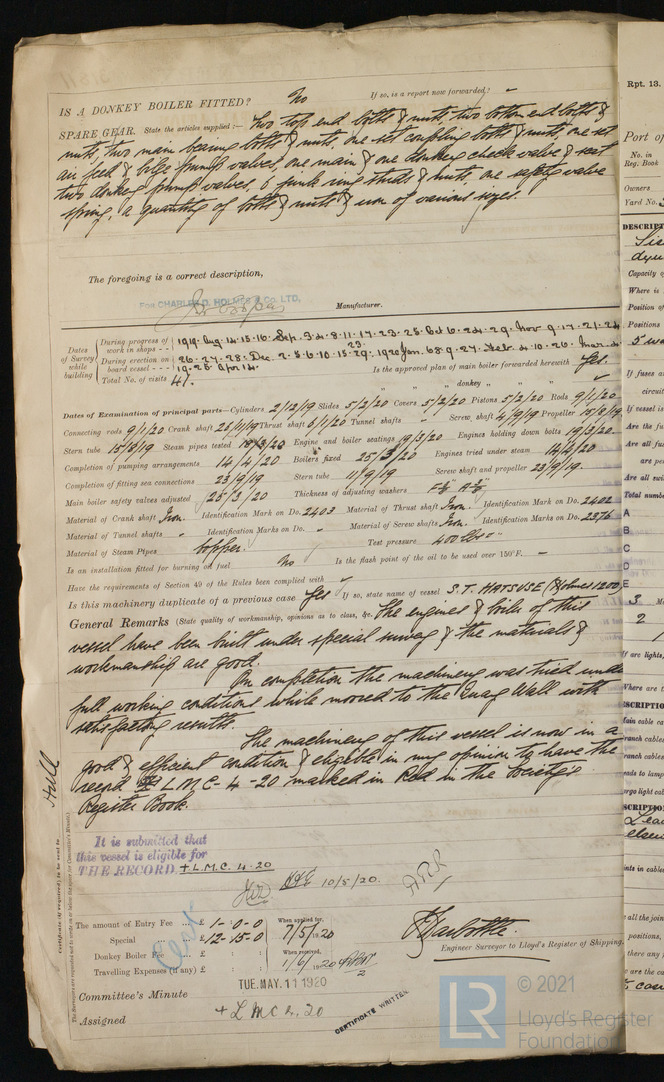 IS A DONKEY BOILER FITTED? No If so, is a report now forwarded? "
SPARE GEAR. State the articles supplied :— Two top end bolts & nuts, two bottom end bolts &
nuts, two main bearing bolts & nuts, one set coupling bolts & nuts, one set
air feed & bilge pump valves, one main & one donkey check valve & seat
two donkey pump valves, 6 junk ring studs & nuts, one safety valve
spring, a quantity of bolts & nuts & iron of various sizes.
The foregoing is a correct description,
FOR CHARLES D. HOLMES & Co. LTD,
Manufacturer.
Dates of Survey while building
During progress of work in shops - - 1919. Aug 14. 15. 16. Sep. 3. 4. 8. 11. 17. 23. 25. Oct 6. 24. 29. Nov 9. 17. 21. 24
During erection on board vessel - - - 26. 27. 28. Dec. 2. 5. 6. 10. 15. 29. 1920 Jan. 6. 8. 9. 27. Feb. 4. 10. 26. Mar
19. 25. Apr 14.
Total No. of visits 41. Is the approved plan of main boiler forwarded herewith Yes.
" " " donkey " " "
Dates of Examination of principal parts—Cylinders 2/12/19 Slides 5/2/20 Covers 5/2/20 Pistons 5/2/20 Rods 9/1/20
Connecting rods 9/1/20 Crank shaft Thrust shaft 6/1/20 Tunnel shafts Screw shaft 4/9/19 Propeller 15/8/19
Stern tube 15/8/19 Steam pipes tested Engine and boiler seatings 19/3/20 Engines holding down bolts 19/3/20.
Completion of pumping arrangements 14/4/20 Boilers fixed 25/3/20 Engines tried under steam 14/4/20
Completion of fitting sea connections 23/9/19 Stern tube 11/9/19 Screw shaft and propeller 23/9/19.
Main boiler safety valves adjusted 25/3/20 Thickness of adjusting washers
Material of Crank shaft Iron. Identification Mark on Do. 2403 Material of Thrust shaft Iron. Identification Mark on Do. 2402
Material of Tunnel shafts " Identification Marks on Do. " Material of Screw shafts Iron. Identification Marks on Do. 2376
Material of Steam Pipes Copper. Test pressure 400 lbs "
Is an installation fitted for burning oil fuel No Is the flash point of the oil to be used over 150°F. —
Have the requirements of Section 49 of the Rules been complied with "
Is this machinery duplicate of a previous case Yes If so, state name of vessel S.T. HATSUSE (Holmes 1200)
General Remarks (State quality of workmanship, opinions as to class, &c. The engines & boiler of this
vessel have been built under special survey & the materials &
workmanship are good.
On completion the machinery was tried under
full working conditions while moored to the Quay Wall with
satisfactory results.
The machinery of this vessel is now in a
good & efficient condition & eligible in my opinion to have the
record L.M.C. 4-20 marked in Red in the Society's
Register Book.
Hull
Certificate (if required) to be sent to
The Surveyors are requested not to write on or below the space for Committee's Minute.
It is submitted that
this vessel is eligible for
THE RECORD + L.M.C. 4-20
10/5/20.
The amount of Entry Fee .. £ 1-0-0 When applied for,
Special ... £ 12-15-0 7/5/1920
Donkey Boiler Fee ... £ : : When received,
Travelling Expenses (if any) £ : : 1/6/1920
Engineer Surveyor to Lloyd's Register of Shipping.
Committee's Minute TUE. MAY. 11 1920
Assigned + L M C 4. 20
CERTIFICATE WRITTEN.
LR © 2021
Lloyd's Register
Foundation
Rpt. 13.
Port of
No. in
Reg. Book
Owners
Yard No.
DESCRIPT
Capacity of
Where is
Position of
Positions
If fuses a
circuit
If vessel is
Are the fu
Are all fus
are pe
Are all swi
Total numbe
A
B
C
D
E
3
2
If arc lights,
Where are t